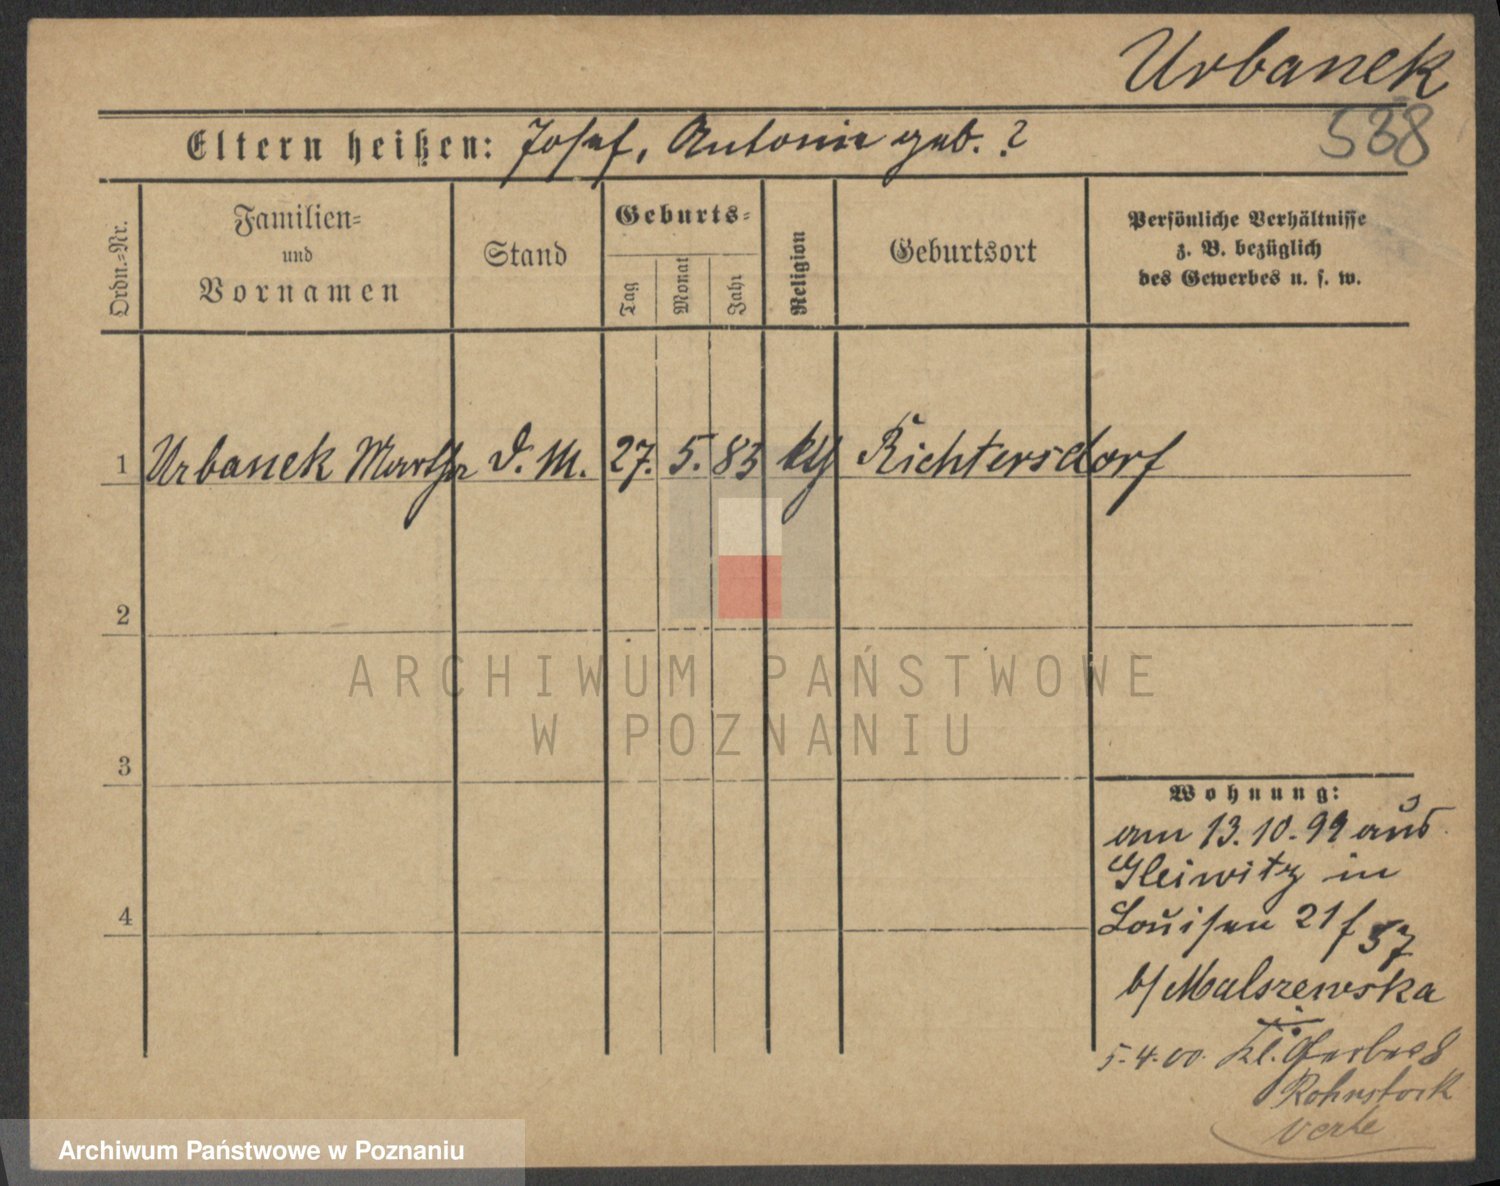 Urbanek
538
Eltern heißen: Josef, Antonie geb. ?
Ordn.-Nr.
Familien-
und
Vornamen
Stand
Geburts-
Tag
Monat
Jahr
Religion
Geburtsort
Persönliche Verhältnisse
z. B. bezüglich
des Gewerbes u. s. w.
1 Urbanek Martha D. M. 27. 5. 83 kth Richtersdorf
2
ARCHIWUM PAŃSTWOWE
W POZNANIU
3
Wohnung:
am 13.10.99 aus
Gleiwitz in
4
Louisen 21 f 57
b/ Malszewska
5.4.00. Kl. Gerber 8
Rohrstock
verte
Archiwum Państwowe w Poznaniu